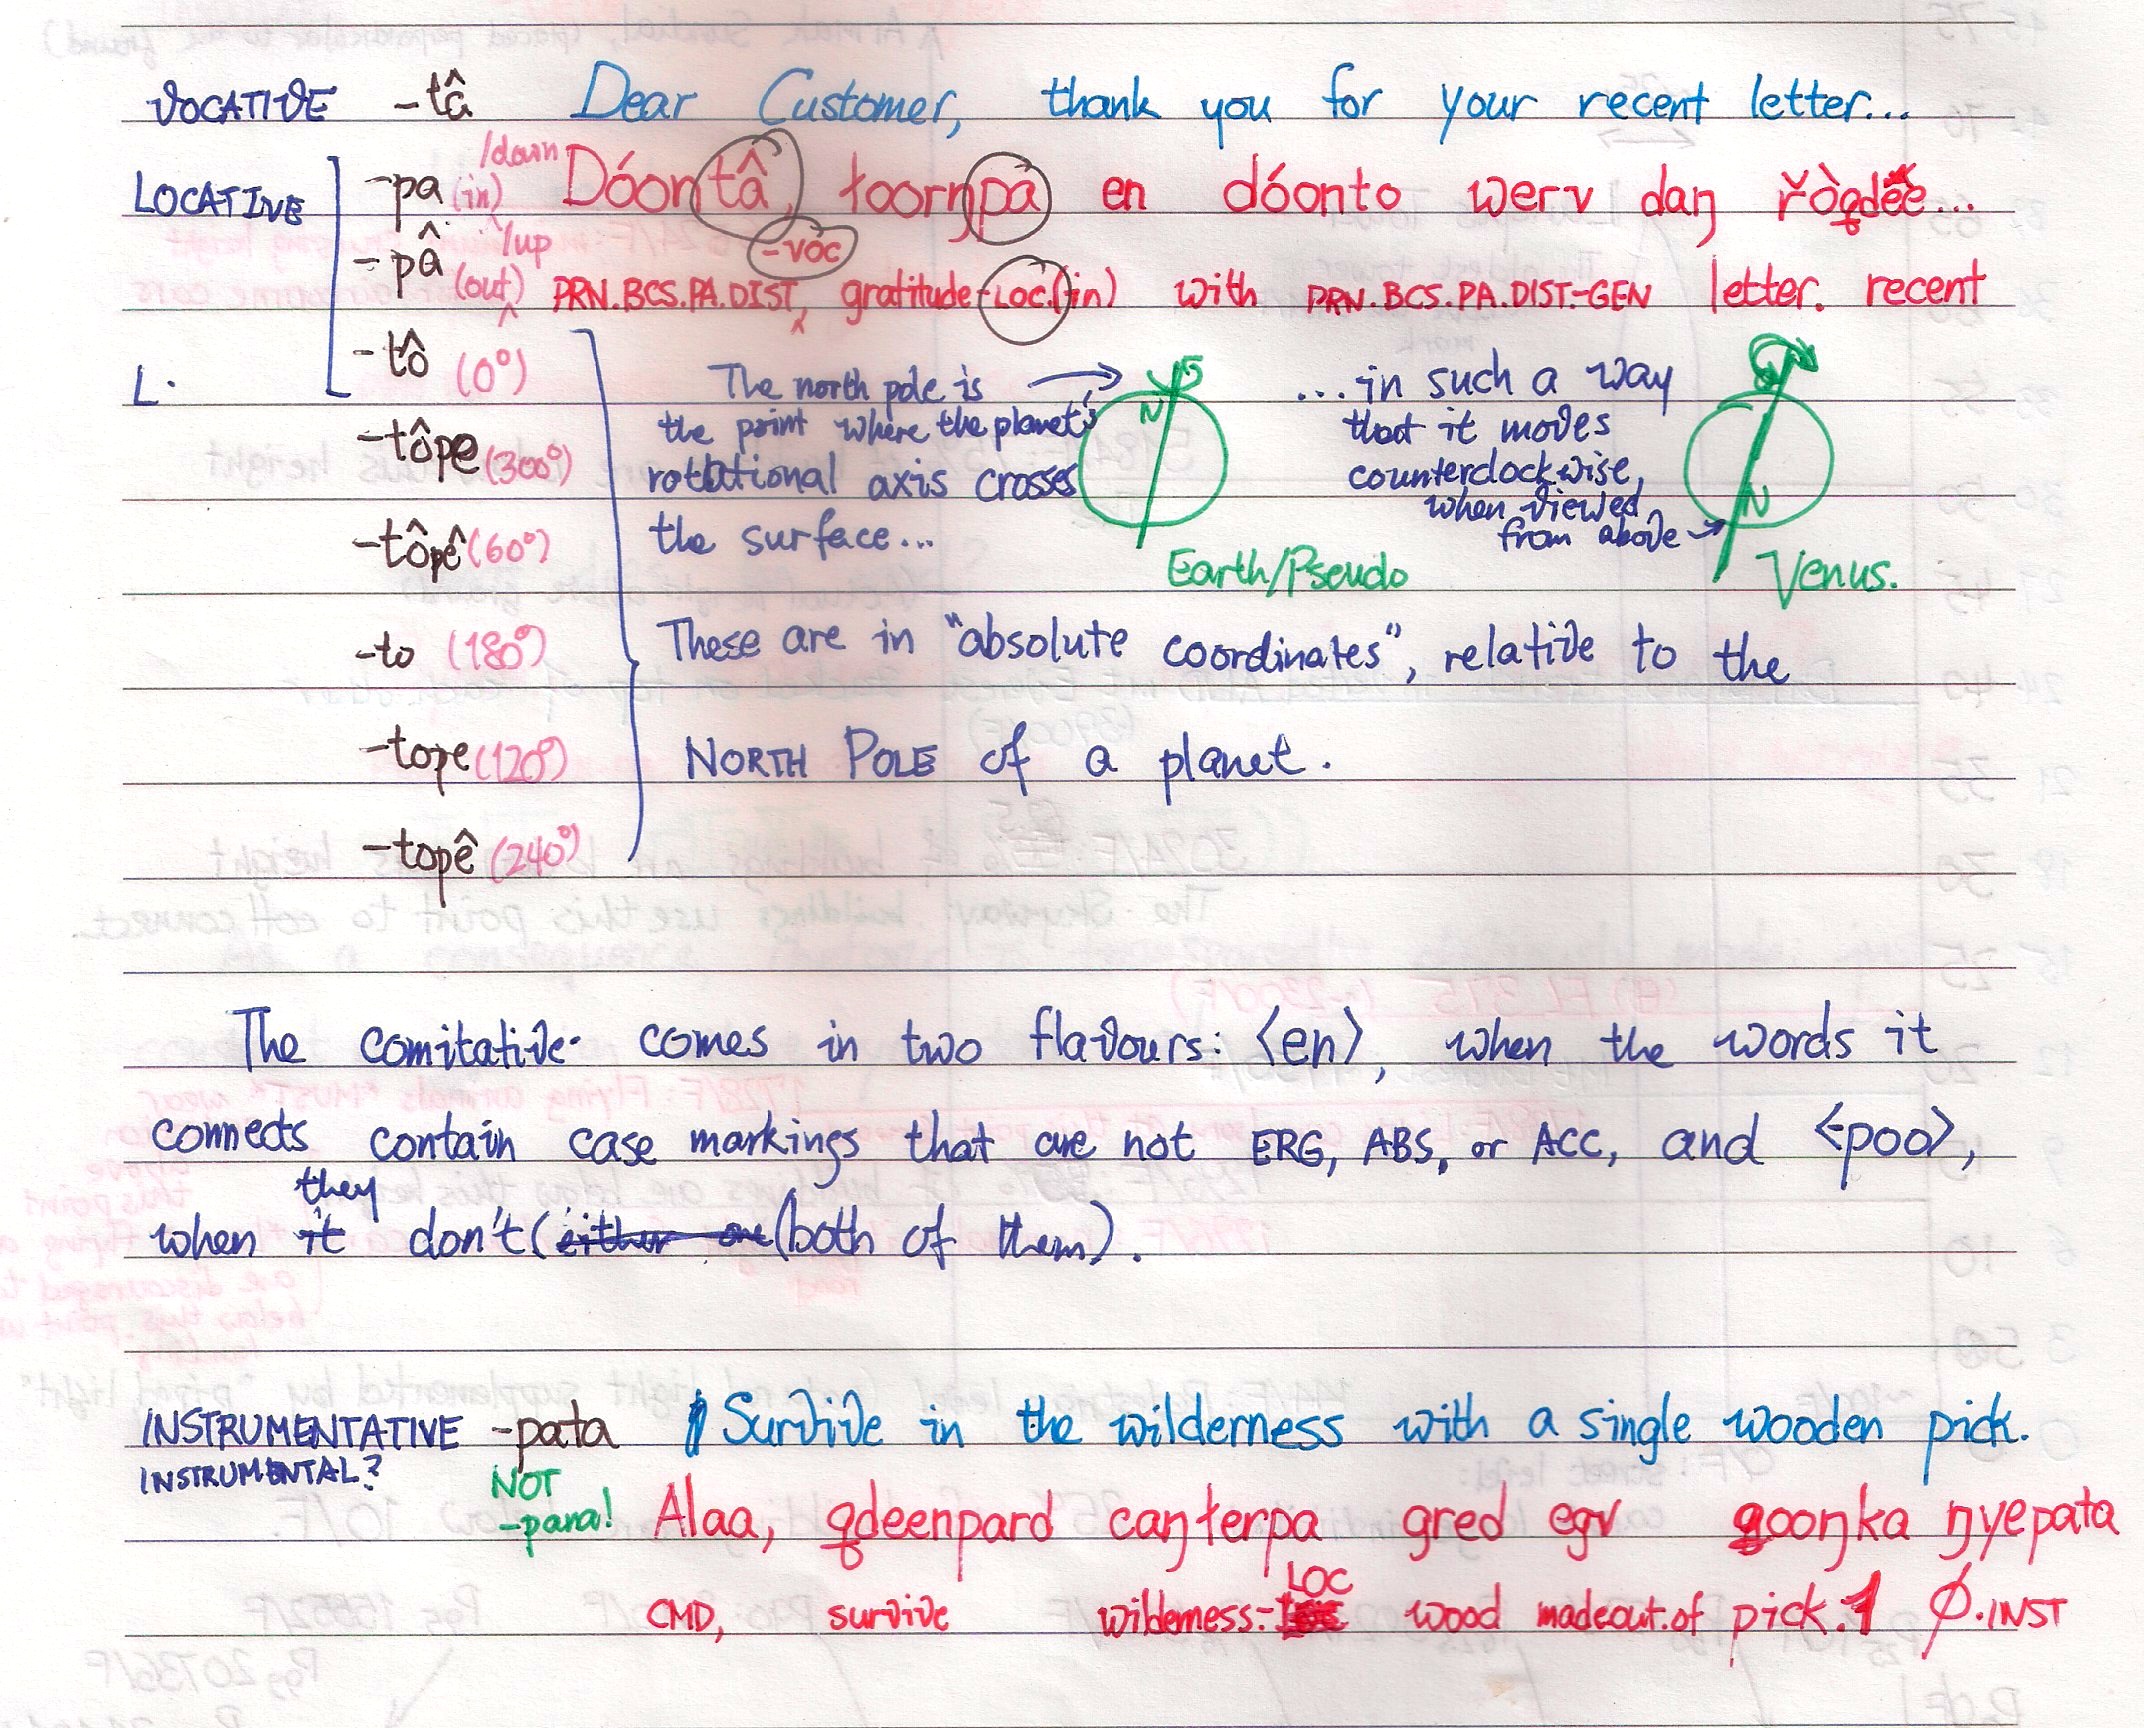 VOCATIVE -tâ Dear Customer, thank you for your recent letter...
LOCATIVE -pa (in) /down Dóontâ, ŧoorŋpa en dóonto werv daŋ
-voc
-pâ (out) /up PRN.BCS.PA.DIST, gratitude-LOC.(in) with PRN.BCS.PA.DIST-GEN letter. recent
-tô (0°)
L.
The north pole is
the point where the planet's
rotational axis crosses
the surface...
N
Earth/Pseudo
...in such a way
that it moves
counterclockwise,
when viewed
from above
N
Venus.
-tôpe (300°)
-tôpê (60°)
-to (180°)
-tope (120°)
-topê (240°)
These are in "absolute coordinates", relative to the
NORTH POLE of a planet.
The comitative comes in two flavours: ⟨en⟩, when the words it
connects contain case markings that are not ERG, ABS, or ACC, and ⟨poo⟩,
when it they don't (either one (both of them).
INSTRUMENTATIVE -pata Survive in the wilderness with a single wooden pick.
INSTRUMENTAL?
NOT
-pana!
Alaa, qdeenpard caŋŧerpa gred egv qooŋka ŋyepata
CMD, survive wilderness-LOC wood madeout.of pick.1 Ø.INST